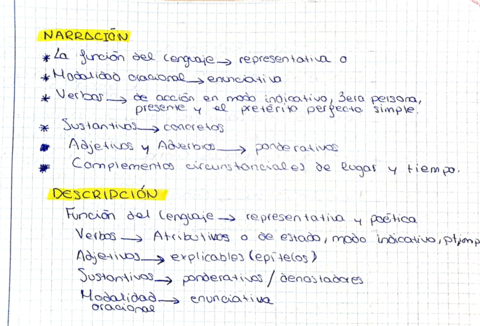 NARRACIÓN
* La función del lenguaje → representativa o
* Modalidad oracional → enunciativa
* Verbos → de acción en modo indicativo, 3era persona,
presente y el pretérito perfecto simple.
* Sustantivos → concretos
• Adjetivos y Adverbios → ponderativos
• Complementos circunstanciales de lugar y tiempo.
DESCRIPCIÓN
Función del lenguaje → representativa y poética
Verbos → Atributivos o de estado, modo indicativo, pt/imp
Adjetivos → explicables (epítetos)
Sustantivos → ponderativos / denostadores
Modalidad → enunciativa
oracional